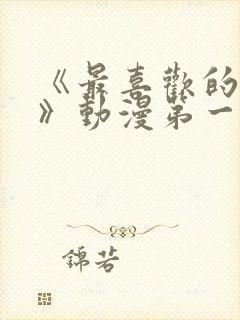 《最喜歡的
》動漫第一
錦若